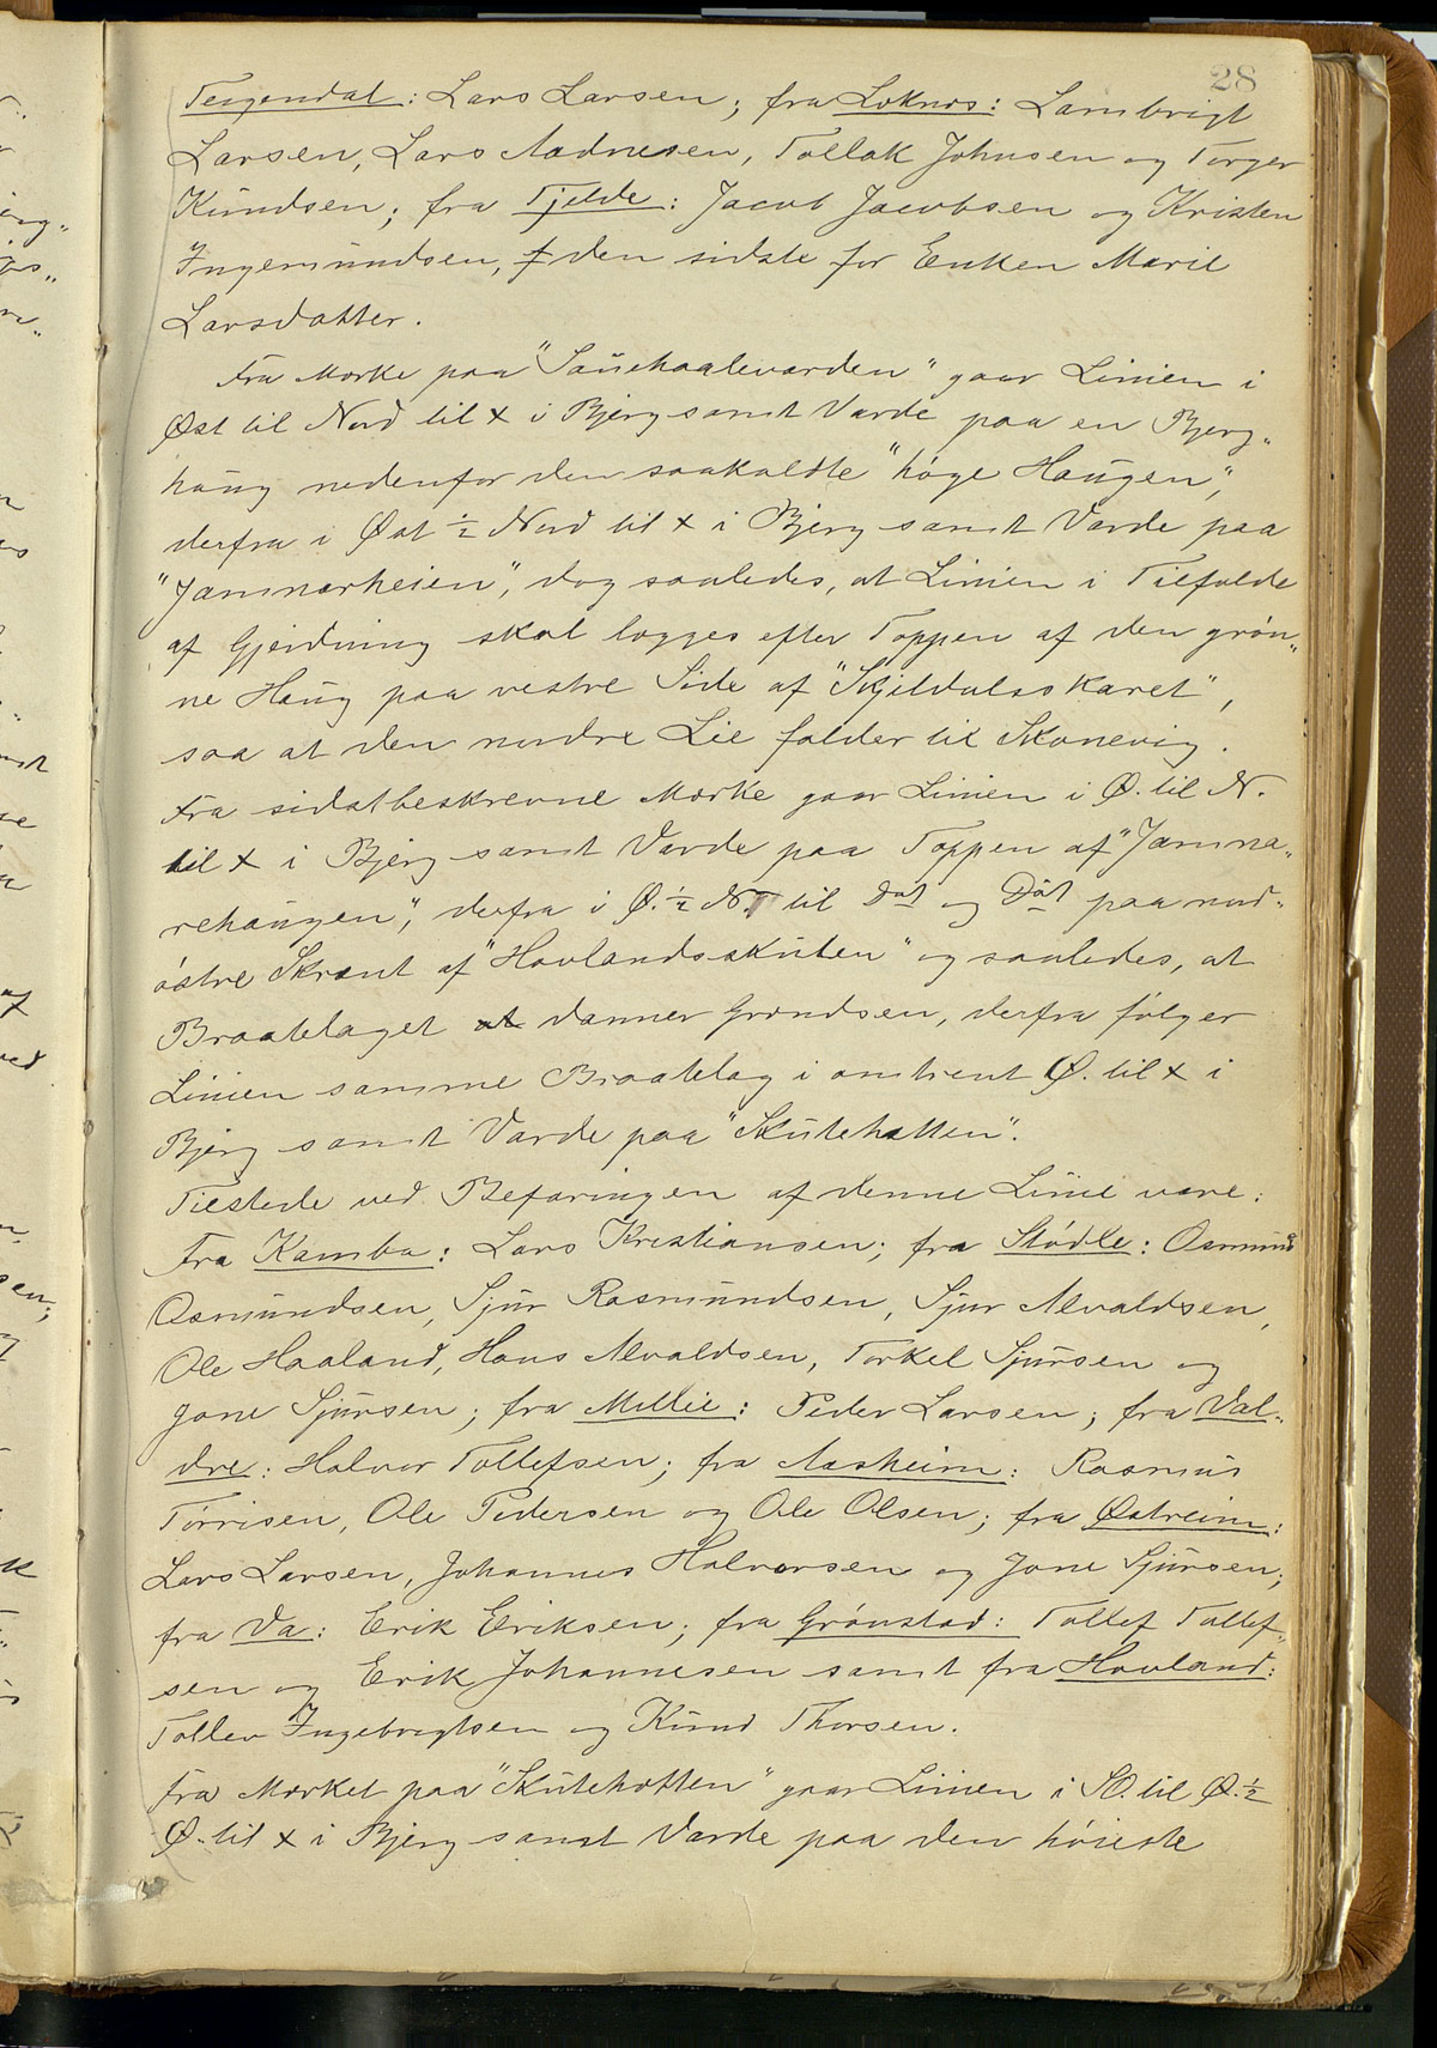 28
Teigendal: Lars Larsen; fra Loknæs: Lambrigt
Larsen, Lars Aadnesen, Tollak Johnsen og Torger
Knudsen; fra Tjelde: Jacob Jacobsen og Kristen
Ingemundsen, den sidste for Enken Marie
Larsdatter.
Fra Mærke paa "Sauehaalevarden" gaar Linien i
Øst til Nord til x i Bjerg samt Varde paa en Bjerg„
haug nedenfor den saakaldte "høge Haugen",
derfra i Øst ½ Nord til x i Bjerg samt Varde paa
"Jamnarheien", dog saaledes, at Linien i Tilfælde
af Gjerdning skal lægges efter Toppen af den grøn„
ne Haug paa vestre Side af "Skjeldalsskaret",
saa at den nordre Lie falder til Skonevig.
Fra sidstbeskrevne Mærke gaar Linien i Ø. til N.
til x i Bjerg samt Varde paa Toppen af "Jamna„
rehaugen", derfra i Ø. ½ N. til Dot og Dot paa nord„
østre Skrænt af "Hovlandsskuten" og saaledes, at
Braatelaget at danner Grændsen, derfra følger
Linien samme Braatelag i omtrent Ø. til x i
Bjerg samt Varde paa "Skutehatten".
Tilstede ved Befaringen af denne Linie vare:
Fra Kamba: Lars Kristiansen; fra Stødle: Osmund
Osmundsen, Sjur Rasmundsen, Sjur Alvaldsen,
Ole Haaland, Hans Alvaldsen, Torkel Sjursen og
Jone Sjursen; fra Millie: Peder Larsen; fra Val„
dre: Halvor Tollefsen; fra Aasheim: Rasmus
Torrisen, Ole Pedersen og Ole Olsen; fra Østreim:
Lars Larsen, Johannes Halvorsen og Jone Sjursen;
fra Va: Erik Eriksen; fra Grønstad: Tollef Tollef„
sen og Erik Johannesen samt fra Hovland:
Tollev Ingebrigtsen og Knud Thorsen.
Fra Mærket paa "Skutehatten" gaar Linien i SO. til Ø. ½
Ø. til x i Bjerg samt Varde paa den høieste